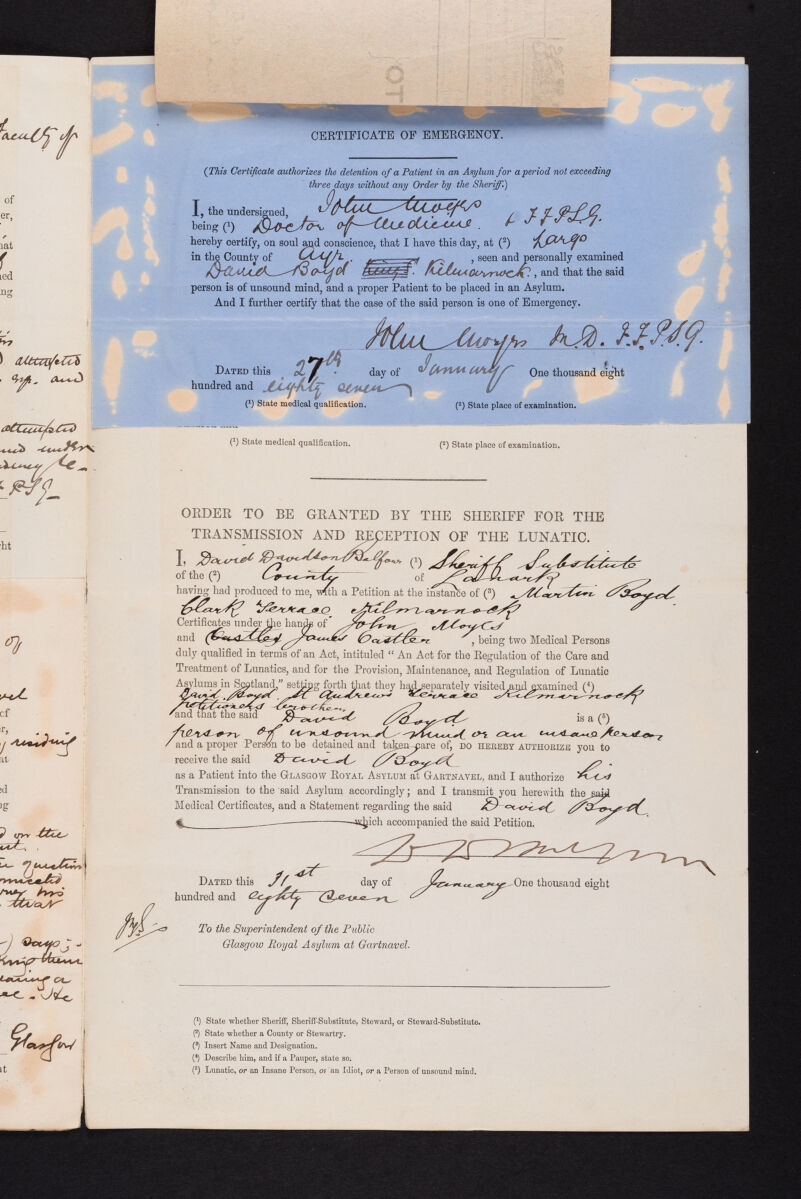 OT
Faculty of
of
er,
hat
ed
ng
attempted
esp. and
attempted
and under
F P S G
ht
of
cf
r,
residing
at
ed
ng
on the
question
connected
his
that
says ;-
them
a
He
Glasgow
at
CERTIFICATE OF EMERGENCY.
(This Certificate authorizes the detention of a Patient in an Asylum for a period not exceeding
three days without any Order by the Sheriff.)
I, the undersigned, John Moyes
being (¹) Doctor of Medicine. & F.F.P.S.G.
hereby certify, on soul and conscience, that I have this day, at (²) Largs
in the County of Ayr , seen and personally examined
David Boyd Kilmarnock , and that the said
person is of unsound mind, and a proper Patient to be placed in an Asylum.
And I further certify that the case of the said person is one of Emergency.
John Moyes M.D. F.F.P.S.G.
DATED this 27th day of January One thousand eight
hundred and eighty seven
(¹) State medical qualification. (²) State place of examination.
(¹) State medical qualification. (²) State place of examination.
ORDER TO BE GRANTED BY THE SHERIFF FOR THE
TRANSMISSION AND RECEPTION OF THE LUNATIC.
I, David Davidson Balfour (¹) Sheriff Substitute
of the (²) County of Lanark
having had produced to me, with a Petition at the instance of (³) Martin Boyd.
Clark Terrace. Kilmarnock
Certificates under the hands of John Moyes
and Castles James Castlen , being two Medical Persons
duly qualified in terms of an Act, intituled " An Act for the Regulation of the Care and
Treatment of Lunatics, and for the Provision, Maintenance, and Regulation of Lunatic
Asylums in Scotland," setting forth that they had separately visited and examined (⁴)
David Boyd. St Andrews Terrace Kilmarnock
petitioners brother.
and that the said David Boyd is a (⁵)
person of unsound mind or an insane person
and a proper Person to be detained and taken care of, DO HEREBY AUTHORIZE you to
receive the said David Boyd
as a Patient into the GLASGOW ROYAL ASYLUM at GARTNAVEL, and I authorize his
Transmission to the said Asylum accordingly; and I transmit you herewith the said
Medical Certificates, and a Statement regarding the said David Boyd.
which accompanied the said Petition.
DATED this 31st day of January One thousand eight
hundred and eighty seven
To the Superintendent of the Public
Glasgow Royal Asylum at Gartnavel.
(¹) State whether Sheriff, Sheriff-Substitute, Steward, or Steward-Substitute.
(²) State whether a County or Stewartry.
(³) Insert Name and Designation.
(⁴) Describe him, and if a Pauper, state so.
(⁵) Lunatic, or an Insane Person, or an Idiot, or a Person of unsound mind.